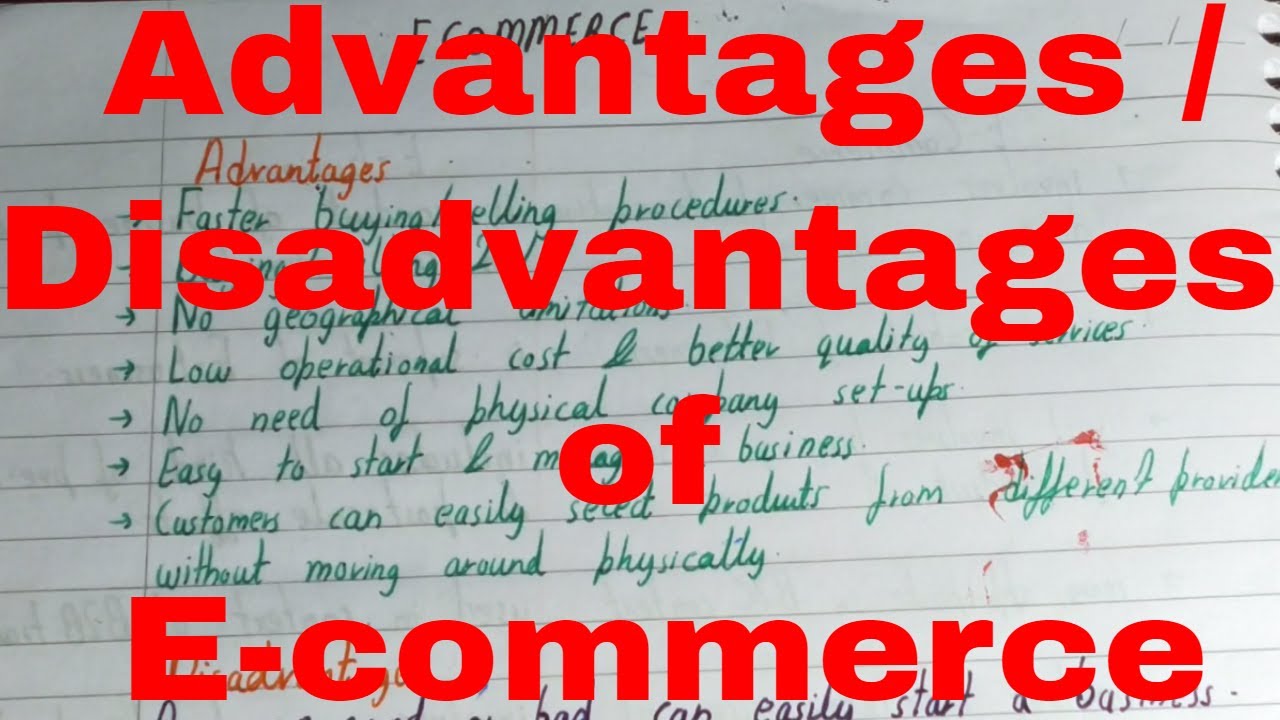 ECOMMERCE
Advantages /
Advantages
Faster buying/selling procedures.
Disadvantages
→ No geographical limitations.
→ Low operational cost & better quality of services.
→ No need of physical company set-ups.
of
→ Easy to start & manage business.
→ Customers can easily select products from different provider
without moving around physically.
E-commerce
Disadvantages
bad can easily start a business.